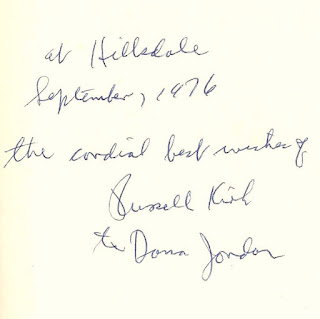 at Hillsdale
September, 1976
the cordial best wishes of
Russell Kirk
to Dona Jordan